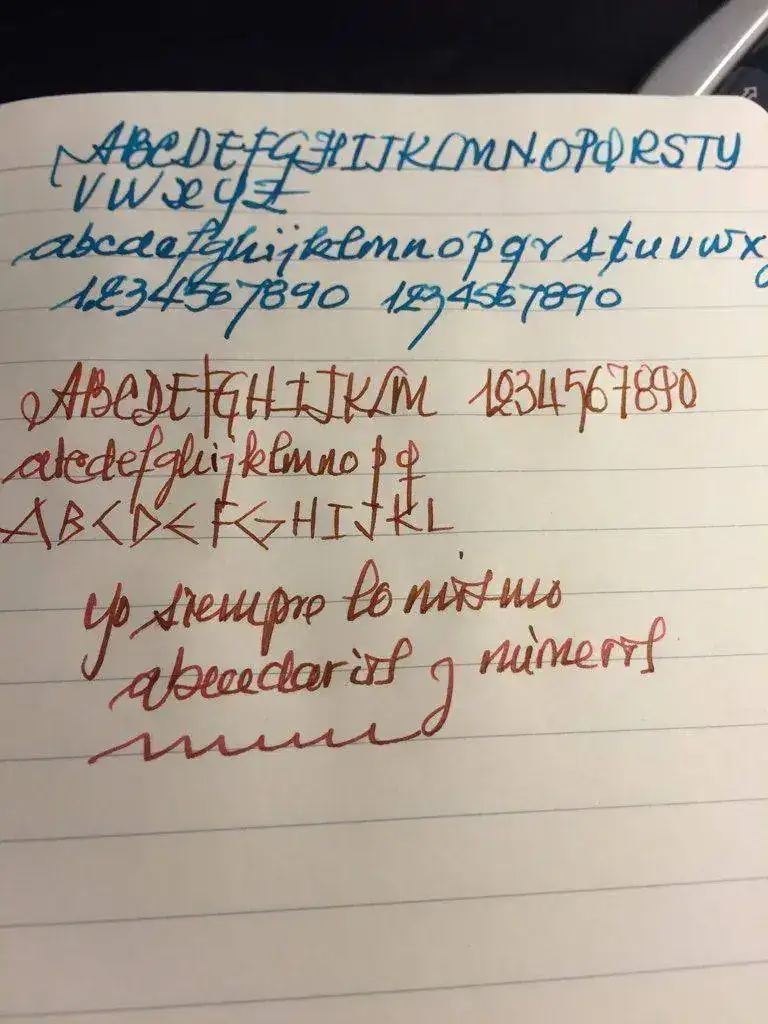 ABCDEFGHIJKLMNOPQRSTU
VWXYZ
abcdefghijklmnopqrstuvwxy
1234567890 1234567890
ABCDEFGHIJKLM 1234567890
abcdefghijklmnopq
ABCDEFGHIJKL
yo siempre lo mismo
abecedarios y números